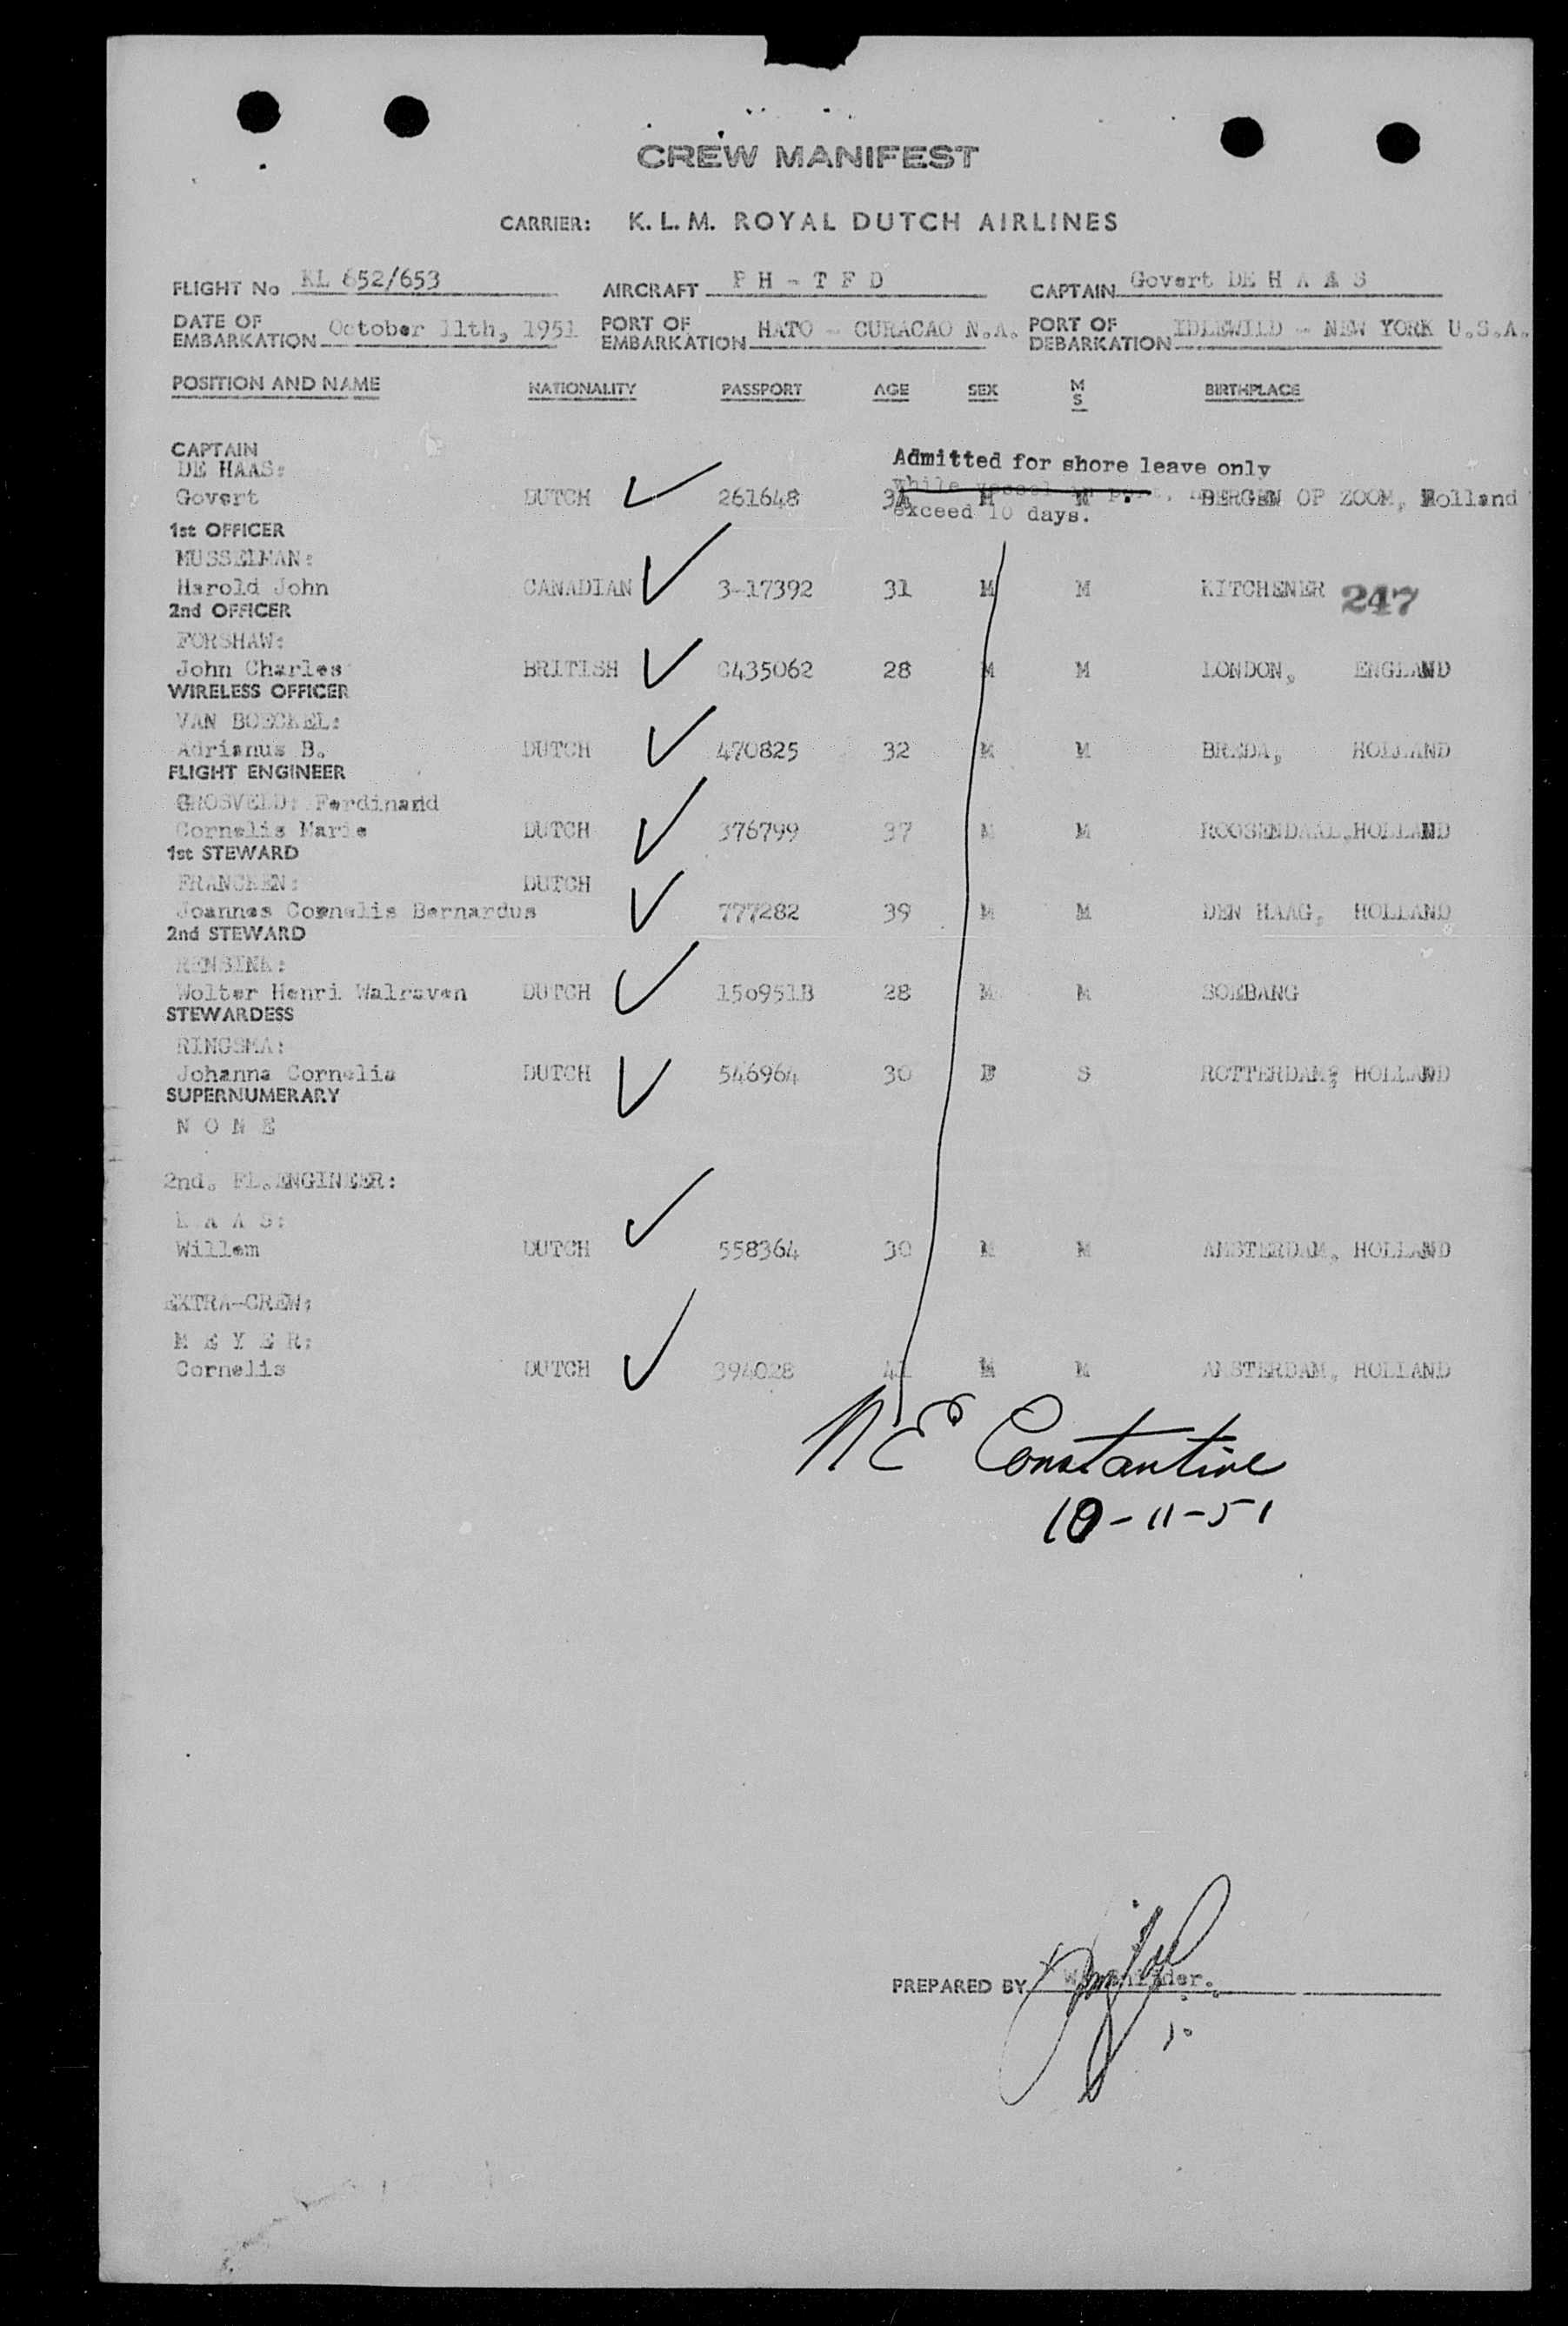 CREW MANIFEST
CARRIER: K.L.M. ROYAL DUTCH AIRLINES
FLIGHT No KL 652/653 AIRCRAFT P H - T F D CAPTAIN Govert DE H A A S
DATE OF EMBARKATION October 11th, 1951 PORT OF EMBARKATION HATO - CURACAO N.A. PORT OF DEBARKATION IDLEWILD - NEW YORK U.S.A.
POSITION AND NAME NATIONALITY PASSPORT AGE SEX M S BIRTHPLACE
CAPTAIN
Admitted for shore leave only
DE HAAS:
Govert DUTCH 261648 M M BERGEN OP ZOOM, Holland
exceed 10 days.
1st OFFICER
MUSSELMAN:
Harold John CANADIAN 3-17392 31 M M KITCHENER 247
2nd OFFICER
FORSHAW:
John Charles BRITISH C435062 28 M M LONDON, ENGLAND
WIRELESS OFFICER
VAN BOECKEL:
Adrianus B. DUTCH 470825 32 M M BREDA, HOLLAND
FLIGHT ENGINEER
GROSVELD: Ferdinand
Cornelis Marie DUTCH 376799 37 M M ROOSENDAAL, HOLLAND
1st STEWARD
FRANCKEN: DUTCH
Joannes Cornelis Bernardus 777282 39 M M DEN HAAG, HOLLAND
2nd STEWARD
RENSINK:
Wolter Henri Walraven DUTCH 150951B 28 M M SOEBANG
STEWARDESS
RINGSMA:
Johanna Cornelia DUTCH 546964 30 F S ROTTERDAM, HOLLAND
SUPERNUMERARY
N O N E
2nd. FL.ENGINEER:
Willem DUTCH 558364 30 M M AMSTERDAM, HOLLAND
EXTRA-CREW:
M E Y E R:
Cornelis DUTCH 394028 41 M M AMSTERDAM, HOLLAND
N E Constantine
10-11-51
PREPARED BY